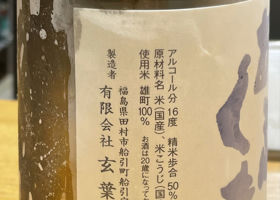 アルコール分 16度 精米歩合 50%
原材料名 米(国産)、米こうじ(国
使用米 雄町100%
お酒は20歳になって
製造者
福島県田村市船引町船引字
有限会社 玄葉